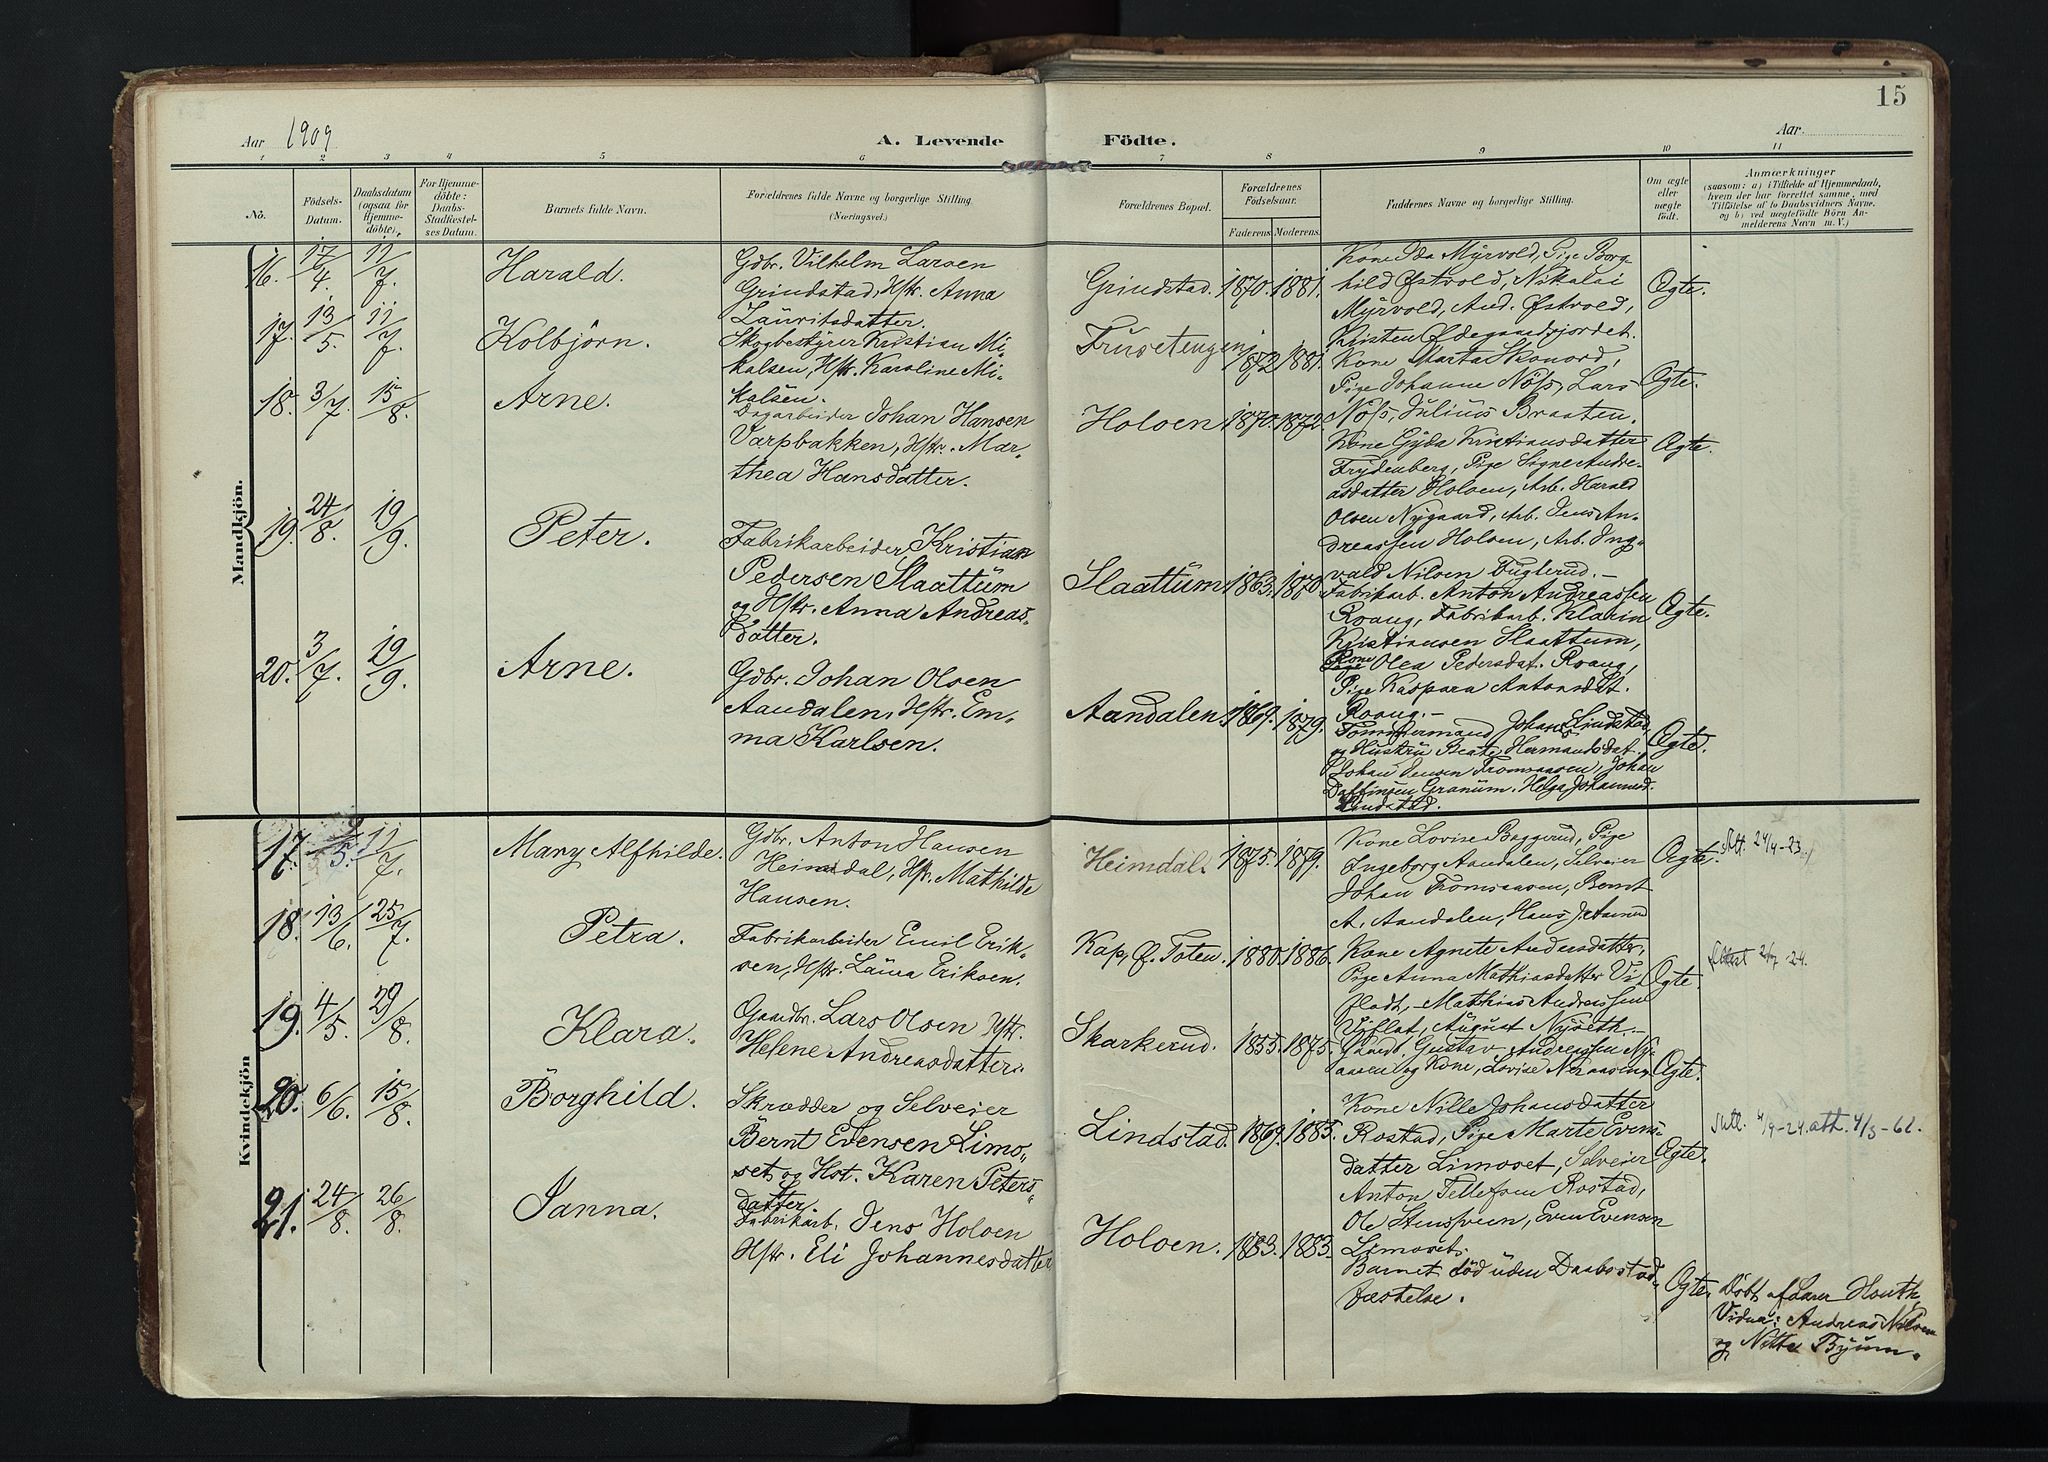 15
Aar 1909
A. Levende Födte.
Aar
1 2 3 4 5 6 7 8 9 10 11
No.
Födsels-
Datum.
Daabsdatum
(ogsaa for
Hjemme-
döbte).
For Hjemme-
döbte:
Daabs-
Stadfæstel-
ses Datum.
Barnets fulde Navn.
Forældrenes fulde Navne og borgerlige Stilling.
(Næringsvei.)
Forældrenes Bopæl.
Forældrenes
Födselsaar.
Faderens Moderens.
Faddernes Navne og borgerlige Stilling.
Om ægte
eller
uægte
födt.
Anmærkninger
(saasom: a) i Tilfælde af Hjemmedaab,
hvem der har forrettet samme, med
Tilføielse af to Daabsvidners Navne,
og b) ved uægtefödte Börn An-
melderens Navn m. V.)
Mandkjön.
16. 17/4. 11/7. Harald.
Gdbr. Vilhelm Larsen
Grindstad, Hstr. Anna
Lauritsdatter.
Grindstad. 1870. 1881.
Kone Ida Myrvold, Pige Borg-
hild Østvold, Nikolai
Myrvold, And. Østvold,
Kristen Ødegaardsjordet.
Ægte.
17. 13/5. 11/7. Kolbjörn.
Skogbestyrer Kristian Mi-
kalsen, Hstr. Karoline Mi-
kalsen.
Frusetengen 1872 1881.
Kone Marta Skonord,
Pige Johanne Nöss, Lars
Nöss, Julius Braaten.
Ægte.
18. 3/7. 15/8. Arne.
Dagarbeider Johan Hansen
Varpbakken, Hstr. Mar-
thea Hansdatter.
Holoen 1870. 1872.
Kone Gyda Kristiansdatter
Frydenberg, Pige Signe Andre-
asdatter Holoen, Arb. Harald
Olsen Nygaard, Arb. Jens An-
dreassen Holoen, Arb. Ing-
vald Nilsen Fuglerud.-
Ægte.
19. 24/8. 19/9. Peter.
Fabrikarbeider Kristian
Pedersen Slaattum
og Hstr. Anna Andreas-
datter.
Slaattum 1863. 1870
Fabrikarb. Anton Andreassen
Roang, Fabrikarb. Klarin
Kristiansen Slaattum,
Kone Olea Pedersdat. Roang,
Pige Kaspara Antonsdat.
Roang.-
Ægte.
20. 3/7. 19/9. Arne.
Gdbr. Johan Olsen
Aandalen, Hstr. Em-
ma Karlsen.
Aandalen. 1869. 1879.
Tømmermand Johan Lindstad
og Hustru Beate Hermandsdat.
Johan Jensen Fromsaasen, Johan
Granum. Helga Johannesd.
Lindstad.
Ægte.
Kvindekjön
17. 9/5. 11/7. Mary Alfhilde.
Gdbr. Anton Hansen
Heimdal, Hstr. Mathilde
Hansen.
Heimdal. 1875. 1879.
Kone Lovise Baggerud, Pige
Ingeborg Aandalen, Selveier
Johan Fromsaasen, Bernt
A. Aandalen, Hans
Ægte. Att. 24/4-23
18. 13/6. 25/7. Petra.
Fabrikarbeider Emil Erik-
sen, Hstr. Laura Eriksen.
Kap, Ø. Toten. 1880. 1886.
Kone Agnete Andersdatter,
Pige Anna Mathiasdatter Vi-
fladt, Mathias Andreassen
Viflat, August Nyseth.-
Ægte. Attest 24.
19. 4/5. 29/8. Klara.
Gaardbr. Lars Olsen Hstr.
Helene Andreasdatter.
Skarkerud. 1855. 1875.
Gaardb. Gustav Andreassen Ny-
aasen og Kone, Lovise
Ægte.
20. 6/6. 15/8. Borghild.
Skrædder og Selveier
Bernt Evensen Limo-
set, og Hst. Karen Peters-
datter.
Lindstad. 1869. 1885.
Kone Nille Johansdatter
Rostad, Pige Marte Evens-
datter Limoset, Selveier
Anton Tellefsen Rostad,
Ole Stensveen, Even Evensen
Limoset.
Ægte. Utl. 4/9-24. att. 4/5-62.
21. 24/8. 26/8. Janna.
Fabrikarb. Jens Holoen
Hstr. Eli Johannesdatter
Holoen. 1883. 1883.
Barnet död uden Daabsstad-
fæstelse.
Ægte. Døbt af Lærer Houth
Vidner: Andreas Nilsen
og Nitte Byum.